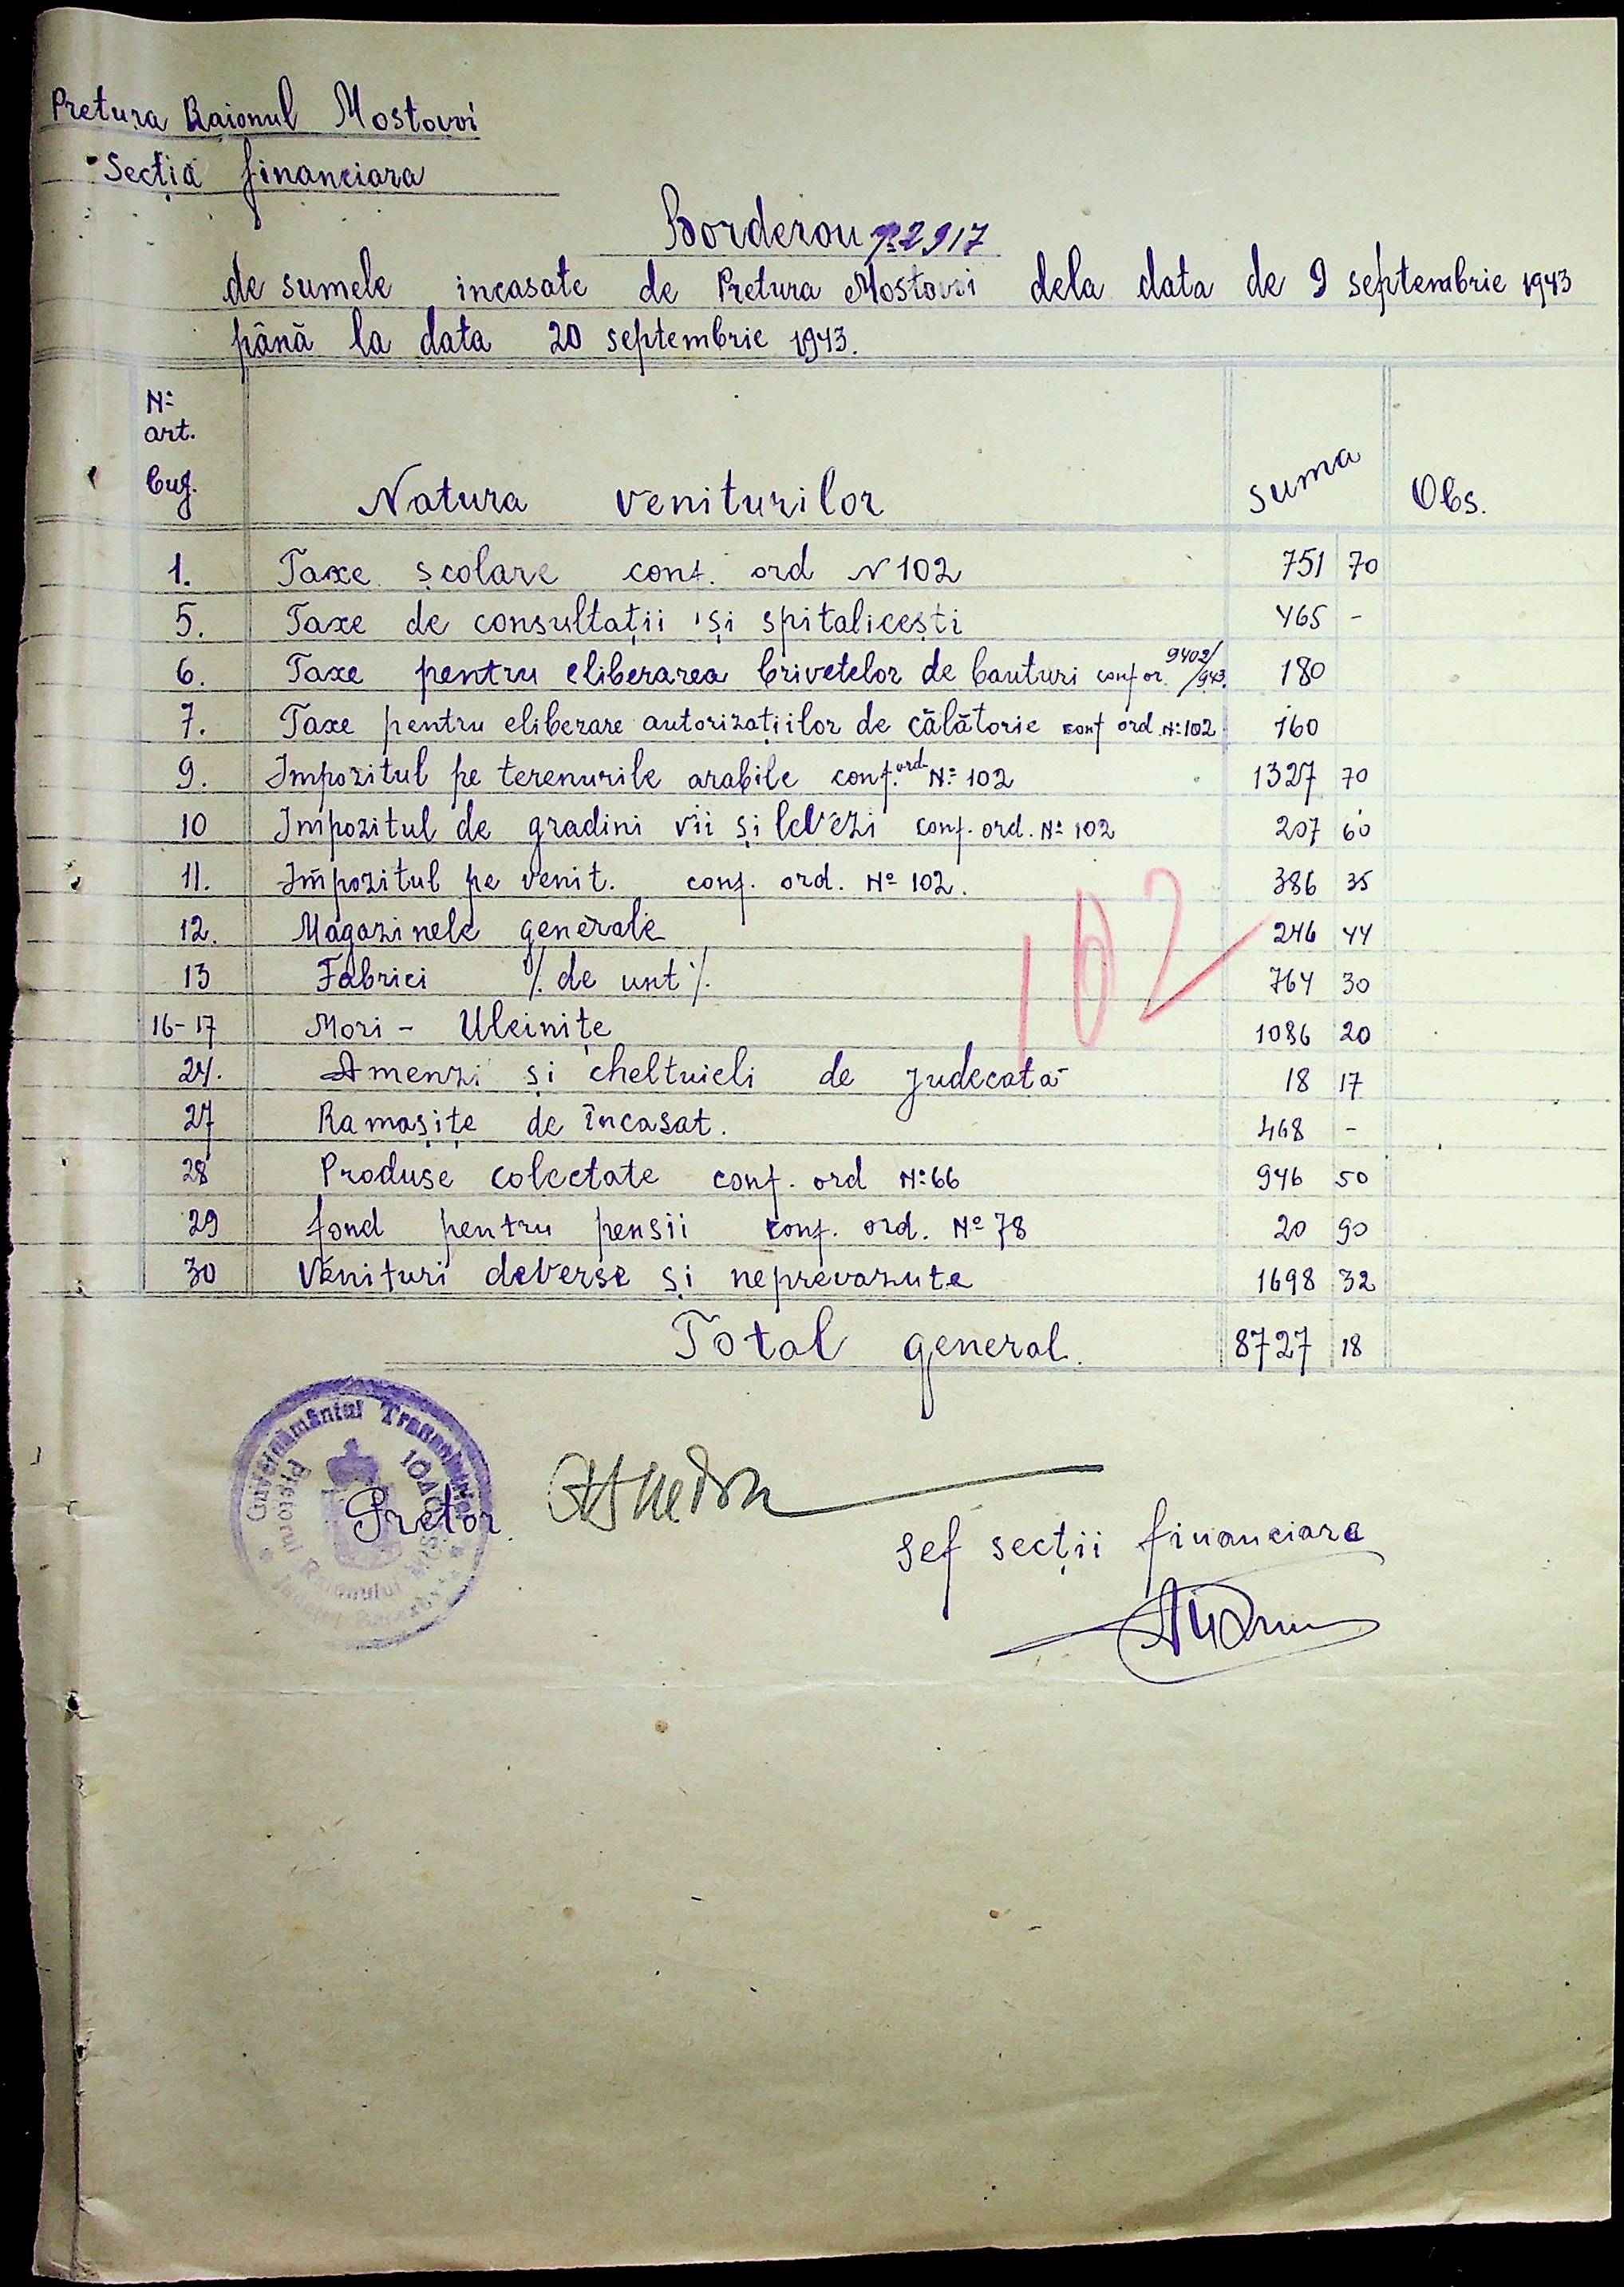 Pretura Raionul Mostovoi
Secția financiara
Borderou № 2917
de sumele incasate de Pretura Mostovoi dela data de 9 septembrie 1943
până la data 20 septembrie 1943.
№ art. bug. Natura veniturilor suma Obs.
1. Taxe școlare conf. ord N 102 751 70
5. Taxe de consultații și spitalicești 465 -
6. Taxe pentru eliberarea brivetelor de bauturi conf or. 9402/943. 180
7. Taxe pentru eliberare autorizațiilor de călătorie conf ord. №102 160
9. Impozitul pe terenurile arabile conf. ord № 102 1327 70
10 Impozitul de gradini vii și levezi conf. ord. № 102 207 60
11. Impozitul pe venit. conf. ord. № 102. 386 35
12. Magazinele generale 246 44
13 Fabrici /. de unt /. 764 30
16-17 Mori - Uleinițe 1086 20
24. Amenzi și cheltuieli de judecată 18 17
27 Ramașițe de încasat. 468 -
28 Produse colectate conf. ord №66 946 50
29 fond pentru pensii conf. ord. № 78 20 90
30 Venituri deverse și neprevazute 1698 32
Total general. 8727 18
102
Guvernământul Transnistriei
Pretor
Șef secții financiare